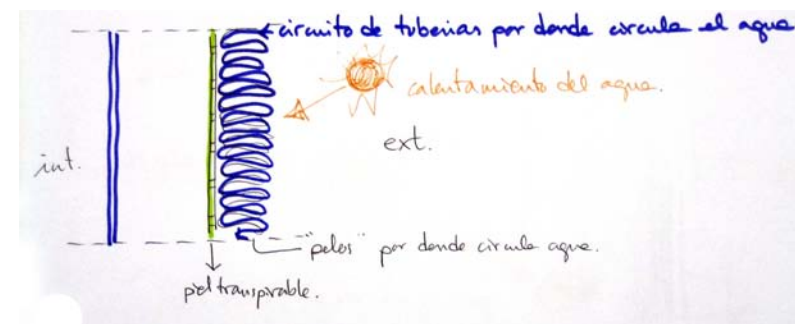 circuito de tuberias por donde circula el agua
calentamiento del agua.
ext.
int.
"pelos" por donde circula agua.
piel transpirable.